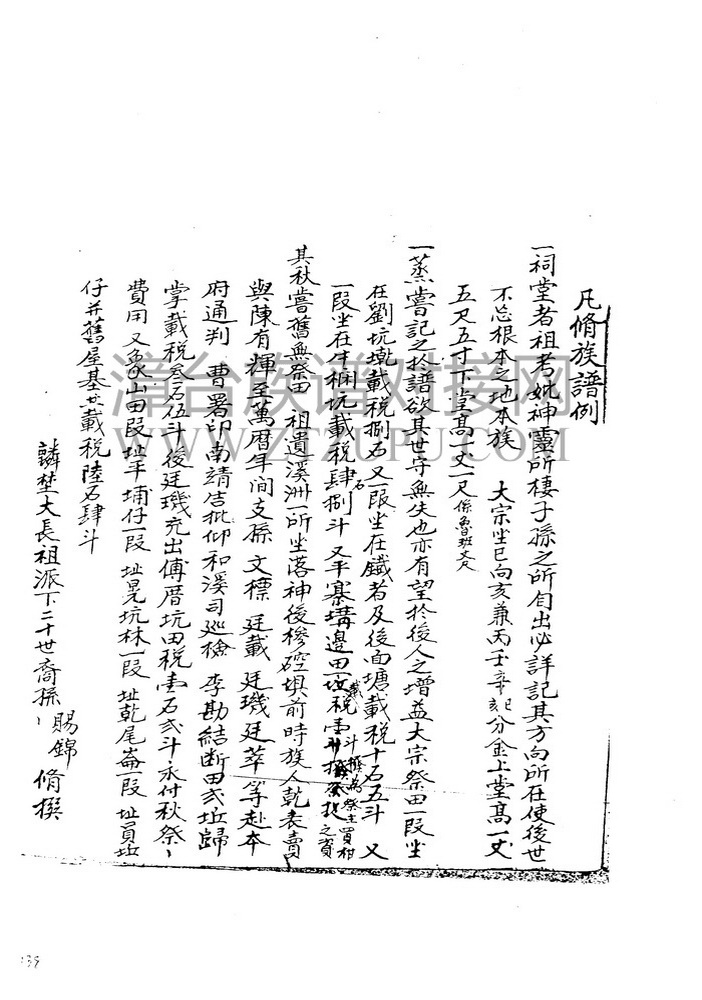 凡脩族譜例
一祠堂者祖考妣神靈所棲子孫之所自出必詳記其方向所在使後世
不忘根本之地本族 大宗坐巳向亥兼丙壬辛 分金上堂高一丈
五尺五寸下堂高一丈一尺係魯班丈尺
一蒸嘗記之於譜欲其世守無失也亦有望於後人之增益大宗祭田一段坐
在劉坑 載税捌石又一段坐在 者及後面塘載税十石五斗 又
一段坐在牛 坑載税肆石捌斗 又平寨溝邊田 載税 斗撥為祭主買 之資
其秋嘗舊無祭田 祖遺溪洲一所坐落神後 前時族人乾表賣
與陳有輝至萬曆年間支孫 文標 廷載 廷璣廷萃等赴本
府通判 曹署印南靖吉批仰和溪司巡檢 李勘結断田弍坵歸
掌載税叁石伍斗後廷璣充出傅厝坑田税壹石弍斗永付秋祭
費用又象山田一段址平埔仔一段 址晃坑林一段 址乾尾崙一段 址員坵
仔并舊屋基共載税陸石肆斗
大長祖派下二十世裔孫 賜錦 脩撰
漳台族谱对接网
WWW.ZTZUPU.COM
139